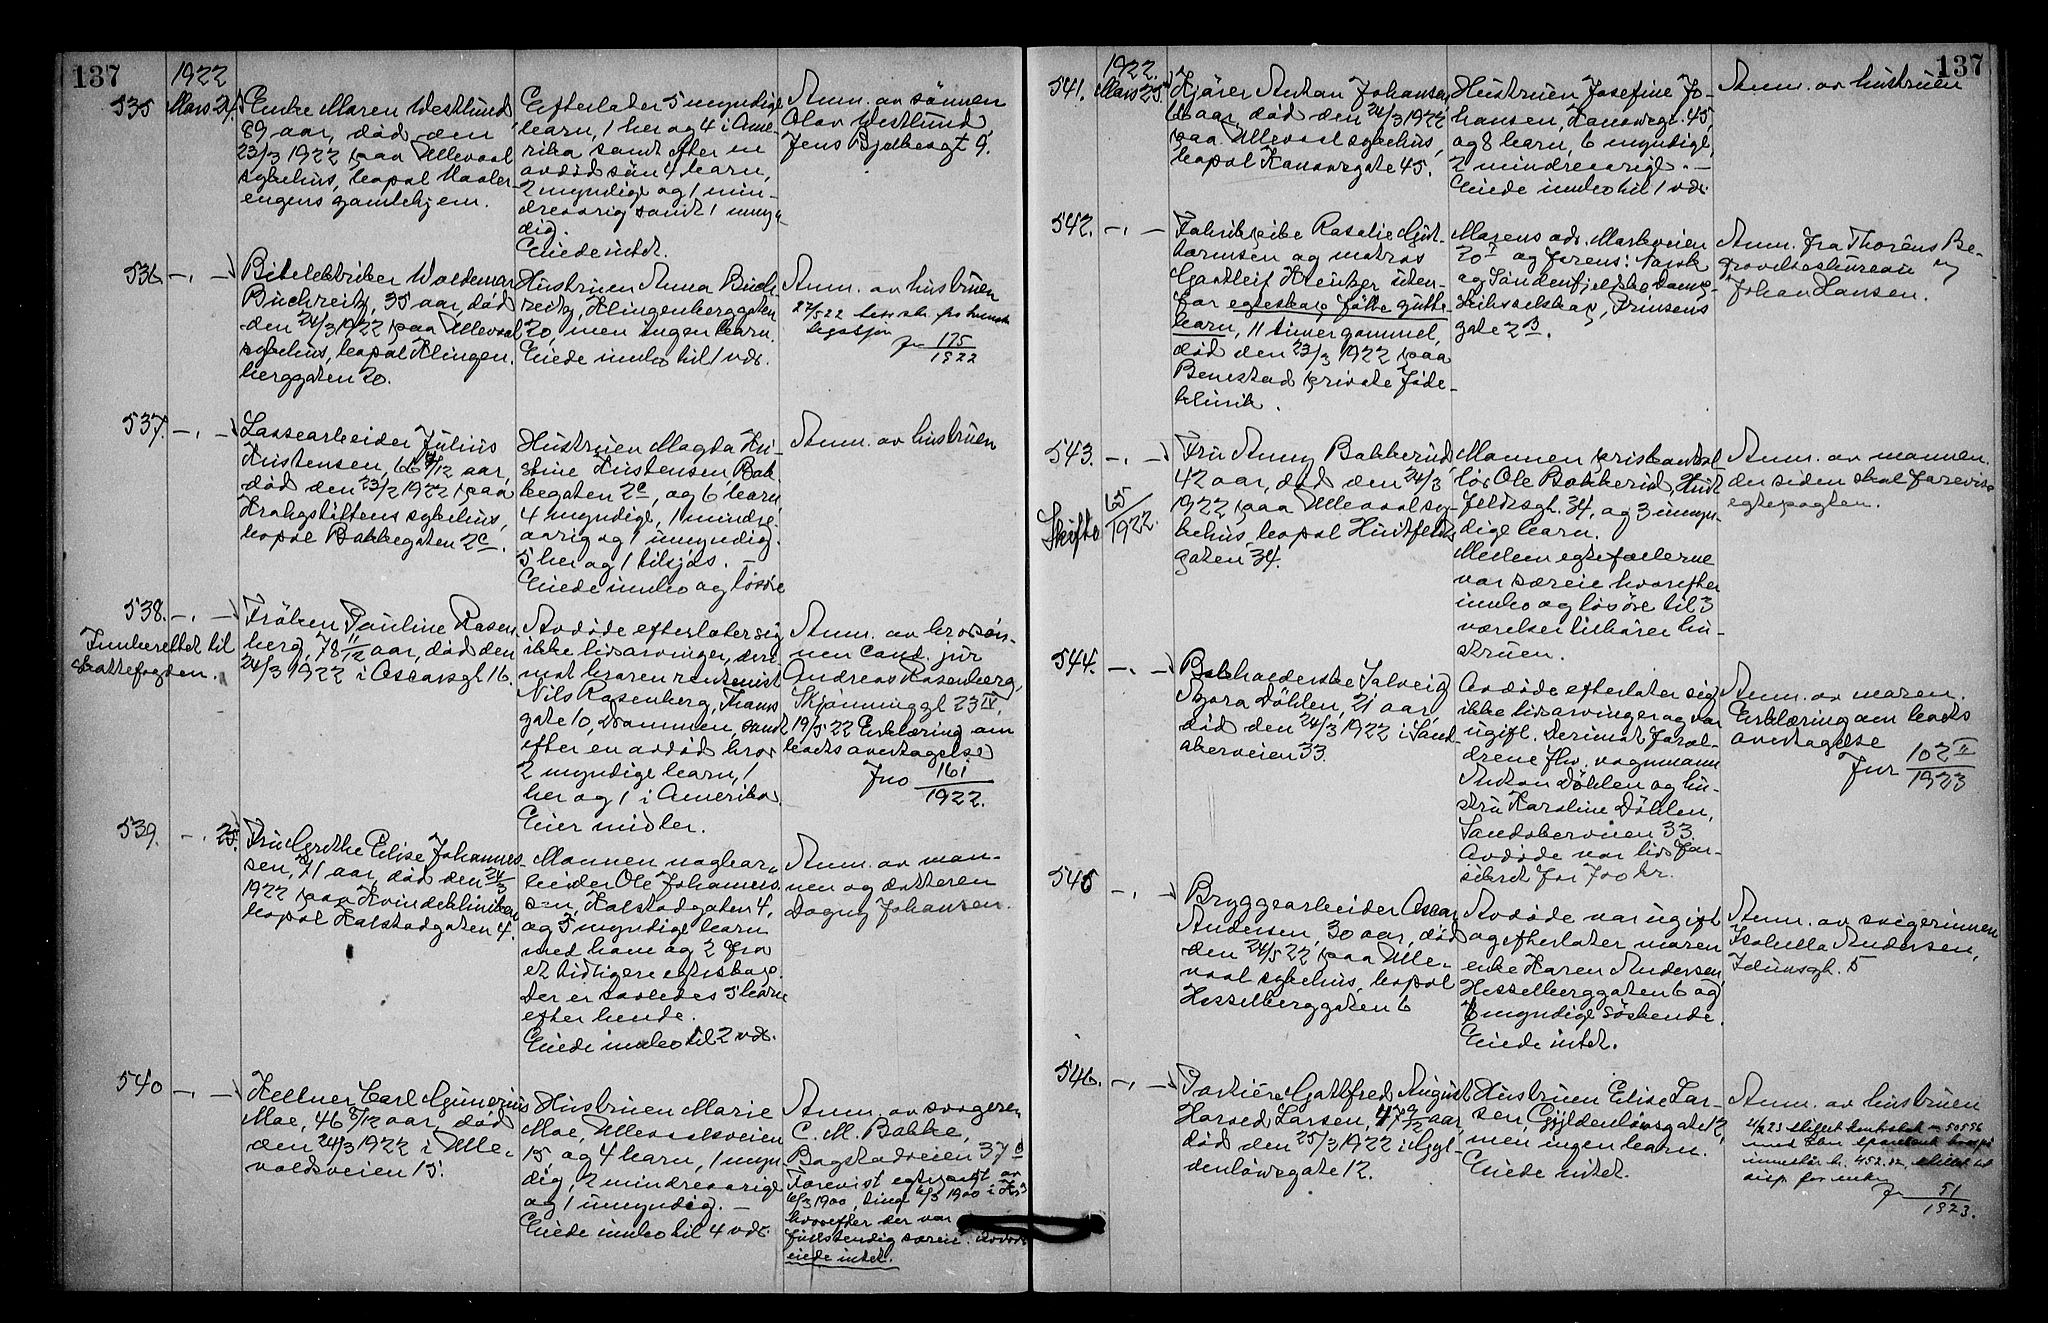 137
1922
535 Mars 24.
Enke Maren Westlund
89 aar, död den
23/3 1922 paa Ullevaal
sykehus, bopæl Vaaler-
engens gamlehjem.
Efterlater 5 myndige
barn, 1 her og 4 i Ame-
rika samt efter en
avdöd sön 4 barn,
2 myndige og 1 min-
dreaarig samt 1 umyn-
dig.
Eiede intet.
Anm. av sönnen
Olav Westlund
Jens Bjelkesgt 9.
536 -,, -
Waldemar
Buchreitz, 35 aar, död
den 24/3 1922 paa Ullevaal
sykehus, bopæl Klingen-
berggaten 20.
Hustruen Anna Buch-
reitz, Klingenberggaten
20, men ingen barn.
Eiede indbo til 1 vær.
Anm. av hustruen
Jn 175
1922
537. -,, -
Lossearbeider Julius
Kristensen, 66 9/12 aar,
död den 23/2 1922 paa
Krohgstöttens sykehus,
bopæl Bakkegaten 2c.
Hustruen Magda Kri-
stine Kristensen Bak-
kegaten 2c, og 6 barn,
4 myndige, 1 mindre-
aarig og 1 umyndig.
5 her og 1 tilsjøs. -
Eiede indbo og lösöre
Anm. av hustruen
538. -,, -
Indberettet til
skattefogden.
Fröken Pauline Rosen-
berg, 78 11/12 aar, död den
24/3 1922 i Oscarsgt 16.
Avdöde efterlater sig
ikke livsarvinger, deri-
mot broren
Nils Rosenberg, Thams
gate 10, Drammen, samt
efter en avdöd bror
2 myndige barn, 1
her og 1 i Amerika.
Eier midler.
Anm. av brorsön-
nen cand. jur
Andreas Rosenberg,
Skjönninggt 23 IV.
19/5 22 Erklæring om
boets overtagelse
Jno 161
1922.
539. -,, 25.
Fru Grethe Elise Johannes-
sen, 71 aar, död den 24/3
1922 paa Kvindeklinikken
bopæl Kalstadgaten 4.
Mannen
Ole Johannes-
sen, Kalstadgaten 4,
og 3 myndige barn
med ham og 2 fra
et tidligere egteskap.
Der er saaledes 5 barn
efter hende.
Eiede indbo til 2 vær.
Anm. av man-
nen og datteren
Dagny Johansen.
540 -,, -
Kellner Carl Gunerius
Moe, 46 8/12 aar, död
den 24/3 1922 i Ulle-
valdsveien 15.
Hustruen Marie
Moe, Ullevaalsveien
15 og 4 barn, 1 myn-
dig, 2 mindreaarige
og 1 umyndig. -
Eiede indbo til 4 vær.
Anm. av svogeren
C. M. Bakke,
Bogstadveien 37c
Forevist egtepagt av
6/3 1900, tingl 6/3 1900 i
hvorefter der var
fuldstendig særeie. Avdöde
eiede intet.
137
1922.
541. Mars 25.
Kjörer Anton Johansen,
aar, död den 24/3 1922
paa Ullevaal sykehus,
bopæl Kanowsgate 45.
Hustruen Josefine Jo-
hansen, Kanowsgt. 45,
og 8 barn, 6 myndige,
2 mindreaarige. -
Eiede indbo til 1 vær.
Anm. av hustruen
542. -,, -
Fabrikpike Rosalie Gut-
tormsen og matros
Henker uten-
for egteskap födte gutte-
barn, 11 timer gammel,
död den 23/3 1922 paa
Benestad private föde-
klinik.
Morens adr. Markveien
20 og farens: Norsk
og Söndenfjelske Damp-
skibsselskap, Prinsens
gate 2B.
Anm. fra Thoréns Be-
gravelsesbureau v/
Johan Hansen.
543. -,, -
Skifte 65/1922.
Fru Anny Bakkerud,
42 aar, död den 24/3
1922 paa Ullevaal sy-
kehus, bopæl Huitfelds
gaten 34.
Mannen
Ole Bakkerud, Huit
feldtsgt. 34, og 3 umyn-
dige barn.
Mellem egtefællerne
var særeie hvorefter
indbo og lösöre til 3
værelser tilhörer hu-
struen.
Anm. av mannen.
der siden skal forevise
egtepagten.
544. -,, -
Bokholderske Solveig
Thora Döhlen, 21 aar,
död den 24/3 1922 i Sand-
akerveien 33.
Avdöde efterlater sig
ikke livsarvinger og var
ugift. Derimot foræl-
drene fhv. vognmann
Anton Döhlen og hu-
stru Karoline Döhlen,
Sandakerveien 33.
Avdöde var livsfor-
sikret for 700 kr.
Anm. av moren.
Erklæring om boets
overtagelse
Jnr 102 II
1923
545 -,, -
Bryggearbeider Oscar
Andersen, 30 aar, död
den 24/3 22 paa Ulle-
vaal sykehus, bopæl
Hesselberggaten 6
Avdöde var ugift
og efterlater moren
enke Karen Andersen,
Hesselberggaten 6 og
6 myndige söskende.
Eiede intet.
Anm. av svigerinnen
Isabella Andersen,
Idunsgt. 5
546. -,, -
Portiere Gottfred August
Harved Larsen, 47 9/12 aar,
död den 25/3 1922 i Gyl-
denlövsgate 12.
Hustruen Elise Lar-
sen, Gyldenlövsgate 12,
men ingen barn.
Eiede intet.
Anm. av hustruen
Jn 51
1923.